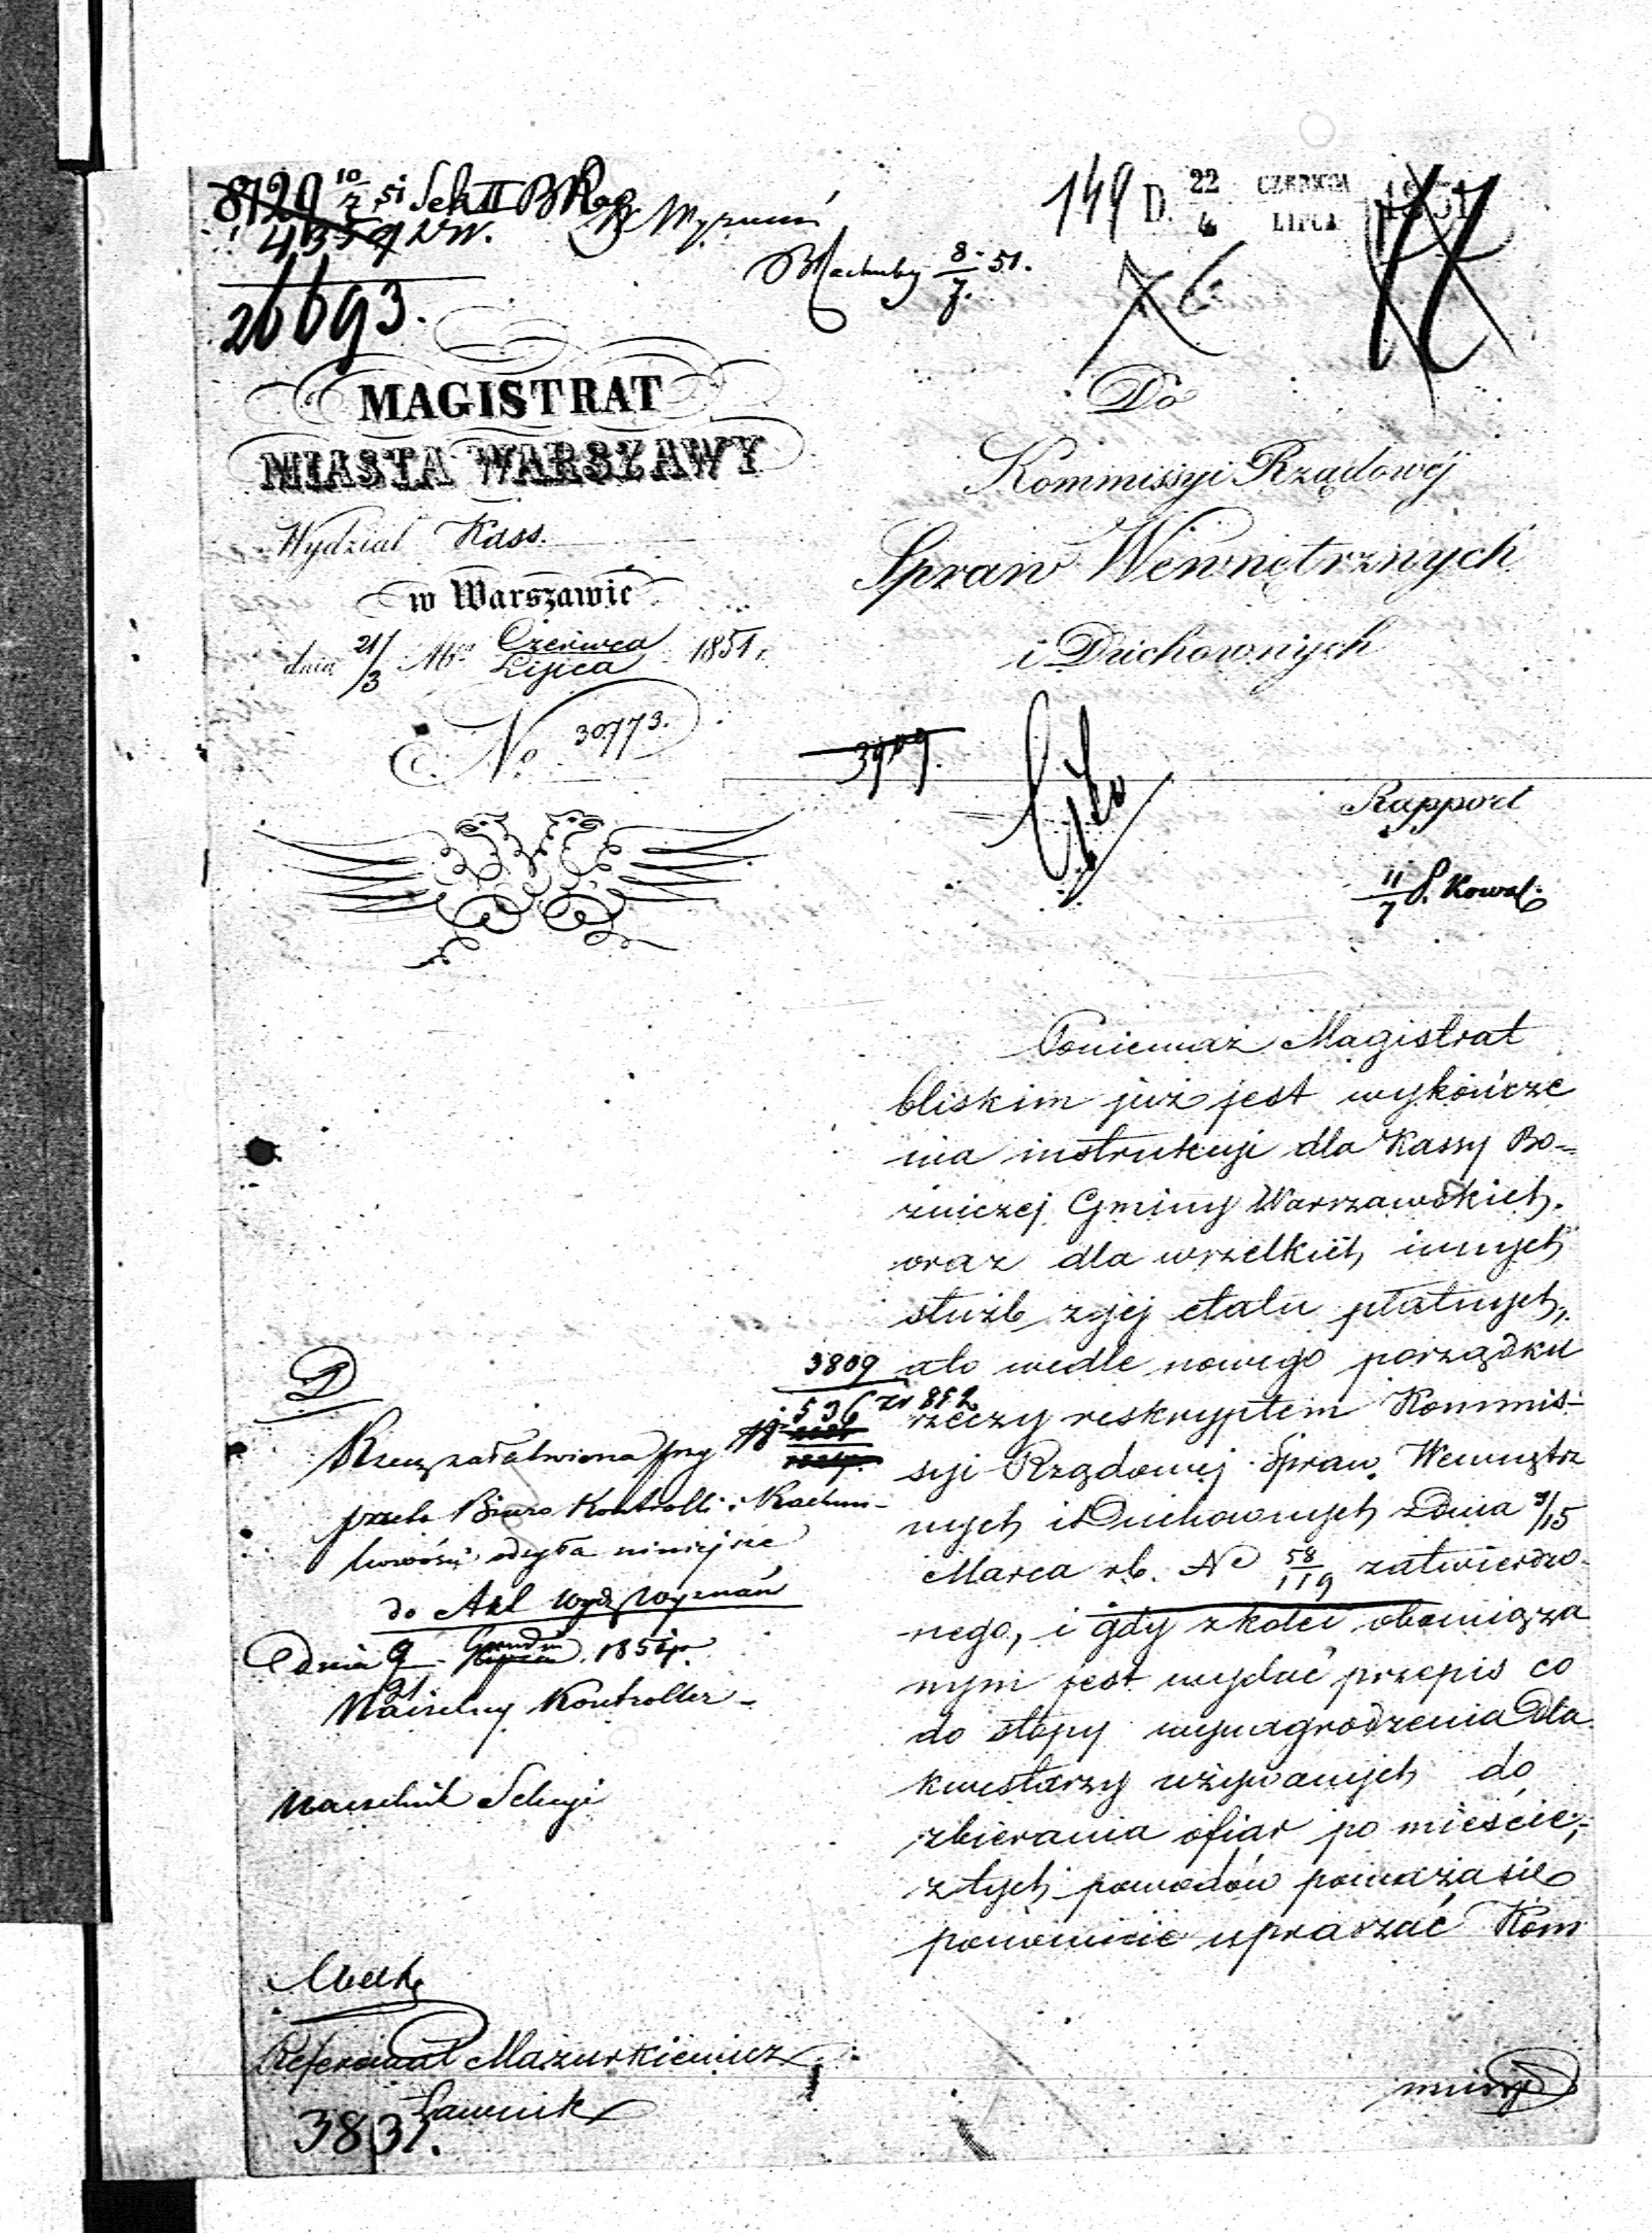 8129 10/7 51 Sek II
4359
26693.
149 D. 22/4 CZERWCA/LIPCA 1851
8/7. 51.
MAGISTRAT
MIASTA WARSZAWY
Wydział Kass.
w Warszawie
dnia 21/3 Mca Czerwca/Lipca 1851 r.
No 30773.
Do
Kommissyi Rządowéj
Spraw Wewnętrznych
i Duchownych
3909
Cito
Rapport
11/7 S. Kowal:
Ponieważ Magistrat
bliskim już jest wykończe
nia instrukcyi dla Kassy Bo-
zniczej Gminy Warszawskich.
oraz dla wszelkich innych
służb z jej etatu płatnych,
a to wedle nowego porządku
rzeczy reskryptem Kommis-
syi Rządowej Spraw Wewnętrz
nych i Duchownych z Dnia 3/15
Marca rb. No 58/119 zatwierdzo-
nego, i gdy z kolei obowiąza
nym jest wydać przepis co
do stopy wynagrodzenia dla
kwestarzy używanych do
zbierania ofiar po mieście,-
z tych powodów poważa się
ponownie upraszać Kom
missyi
3809
536 zr 852
Rzecz załatwiona przy No
przeto Biuro Kontrolli i Rachun-
kowości odsyła niniejsze
do Akt Wydz Wyznań
dnia 9/21 Grudn 1851 r.
Naczelny Kontroller
Naczelnik Sekcyi
Referendał Mazurkiewicz
Ławnik
3831.